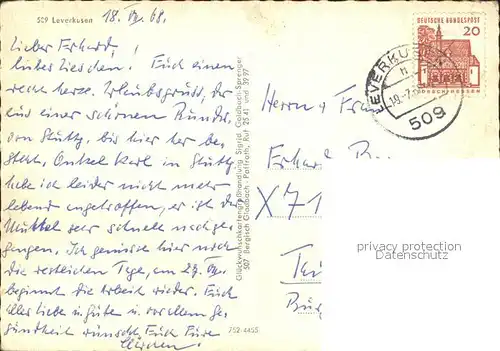 509 Leverkusen
18. VII. 68.
Lieber Erhardt,
liebes Lieschen. Euch einen
recht herzl. Urlaubsgruß, der
aus einer schönen Rundr.
von Stuttg. bis hier her be-
steht. Onkel Karl in Stuttg.
habe ich leider nicht mehr
lebend angetroffen, er ist der
Mutter sehr schnell nachge-
gangen. Ich geniesse hier noch
die restlichen Tage, am 24. VII.
beginnt die Arbeit wieder. Euch
alles Liebe u. Gute u. vor allem Ge-
sundheit wünscht Euch Eure
752-4455
Glückwunschkartengroßhandlung Sigrid Goldbach-Sprenger
507 Bergisch Gladbach - Paffrath, Ruf 25 41 und 39 97
DEUTSCHE BUNDESPOST
20
LORSCH/HESSEN
LEVERKUSEN
509
Herrn u. Frau
Erhardt R
X71
privacy protection
Datenschutz